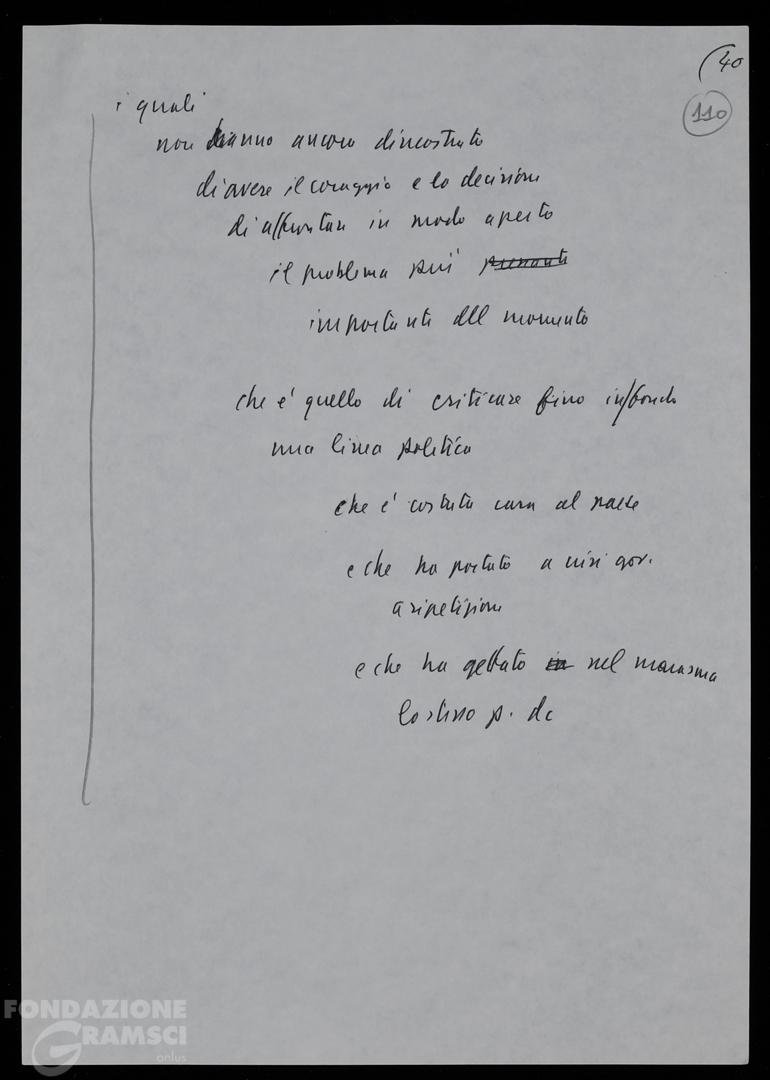 (40
110
i quali
non hanno ancora dimostrato
di avere il coraggio e la decisione
di affrontare in modo aperto
il problema più
importante del momento
che è quello di criticare fino in fondo
una linea politica
che è costata cara al paese
e che ha portato a crisi gov.
a ripetizione
e che ha gettato in nel marasma
lo stesso p. dc
FONDAZIONE
GRAMSCI
onlus